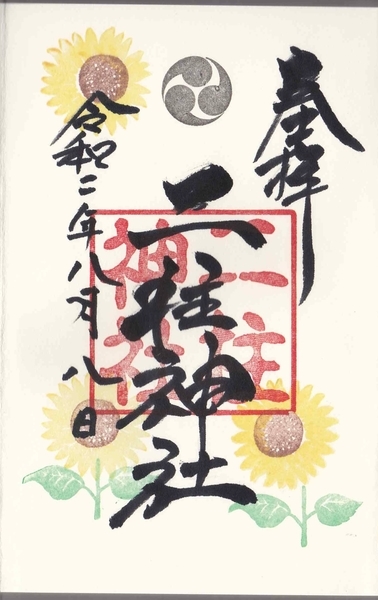 奉拝
二柱神社
二柱
神社
令和二年八月八日